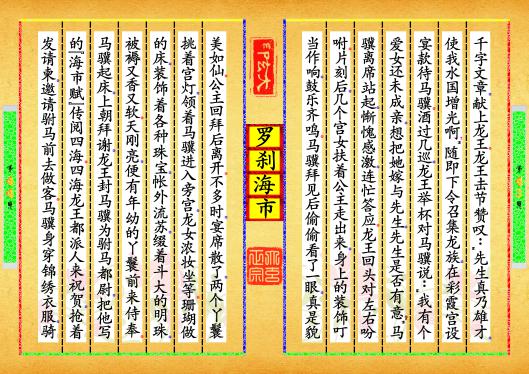 千字文章献上龙王龙王击节赞叹：先生真乃雄才
使我水国增光啊。随即下令召集龙族在彩霞宫设
宴款待马骥酒过几巡龙王举杯对马骥说：我有个
爱女还未成亲想把她嫁与先生先生是否有意。马
骥离席站起惭愧感激连忙答应龙王回头对左右吩
咐片刻后几个宫女扶着公主走出来身上的装饰叮
当作响鼓乐齐鸣马骥拜见后偷偷看了一眼真是貌
罗刹海市
美如仙公主回拜后离开不多时宴席散了两个丫鬟
挑着宫灯领着马骥进入旁宫龙女浓妆坐等珊瑚做
的床装饰着各种珠宝帐外流苏缀着斗大的明珠
被褥又香又软天刚亮便有年幼的丫鬟前来侍奉
马骥起床上朝拜谢龙王封马骥为驸马都尉把他写
的「海市赋」传阅四海四海龙王都派人来祝贺抢着
发请柬邀请驸马前去做客马骥身穿锦绣衣服骑